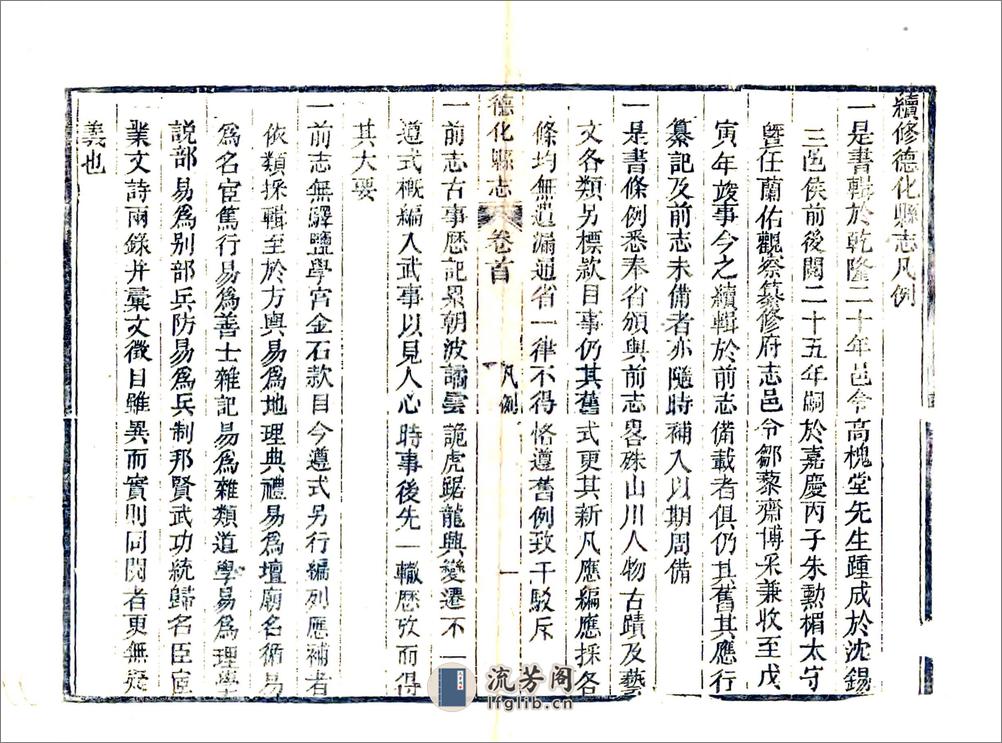 續修德化縣志凡例
一是書輯於乾隆二十年邑令高槐堂先生踵成於沈錫
三邑侯前後閱二十五年嗣於嘉慶丙子朱勳楣太守
曁任蘭佑觀察纂修府志邑令鄒藜齋博采兼收至戊
寅年竣事今之續輯於前志備載者俱仍其舊其應行
纂記及前志未備者亦隨時補入以期周備
一是書條例悉奉省頒與前志畧殊山川人物古蹟及藝
文各類另標款目事仍其舊式更其新凡應編應採各
條均無遺漏通省一律不得恪遵舊例致干駁斥
德化縣志 卷首 凡例 一
一前志古事歷記累朝波譎雲詭虎踞龍興變遷不一
遵式概編入武事以見人心時事後先一轍歷攷而得
其大要
一前志無驛鹽學宮金石款目今遵式另行編列應補者
依類採輯至於方輿易為地理典禮易為壇廟名循易
為名宦篤行易為善士雜記易為雜類道學易為理學
説部易為別部兵防易為兵制邦賢武功統歸名臣宦
業文詩兩錄并彙文徵目雖異而實則同閱者更無疑
義也
流芳阁
lfglib.cn